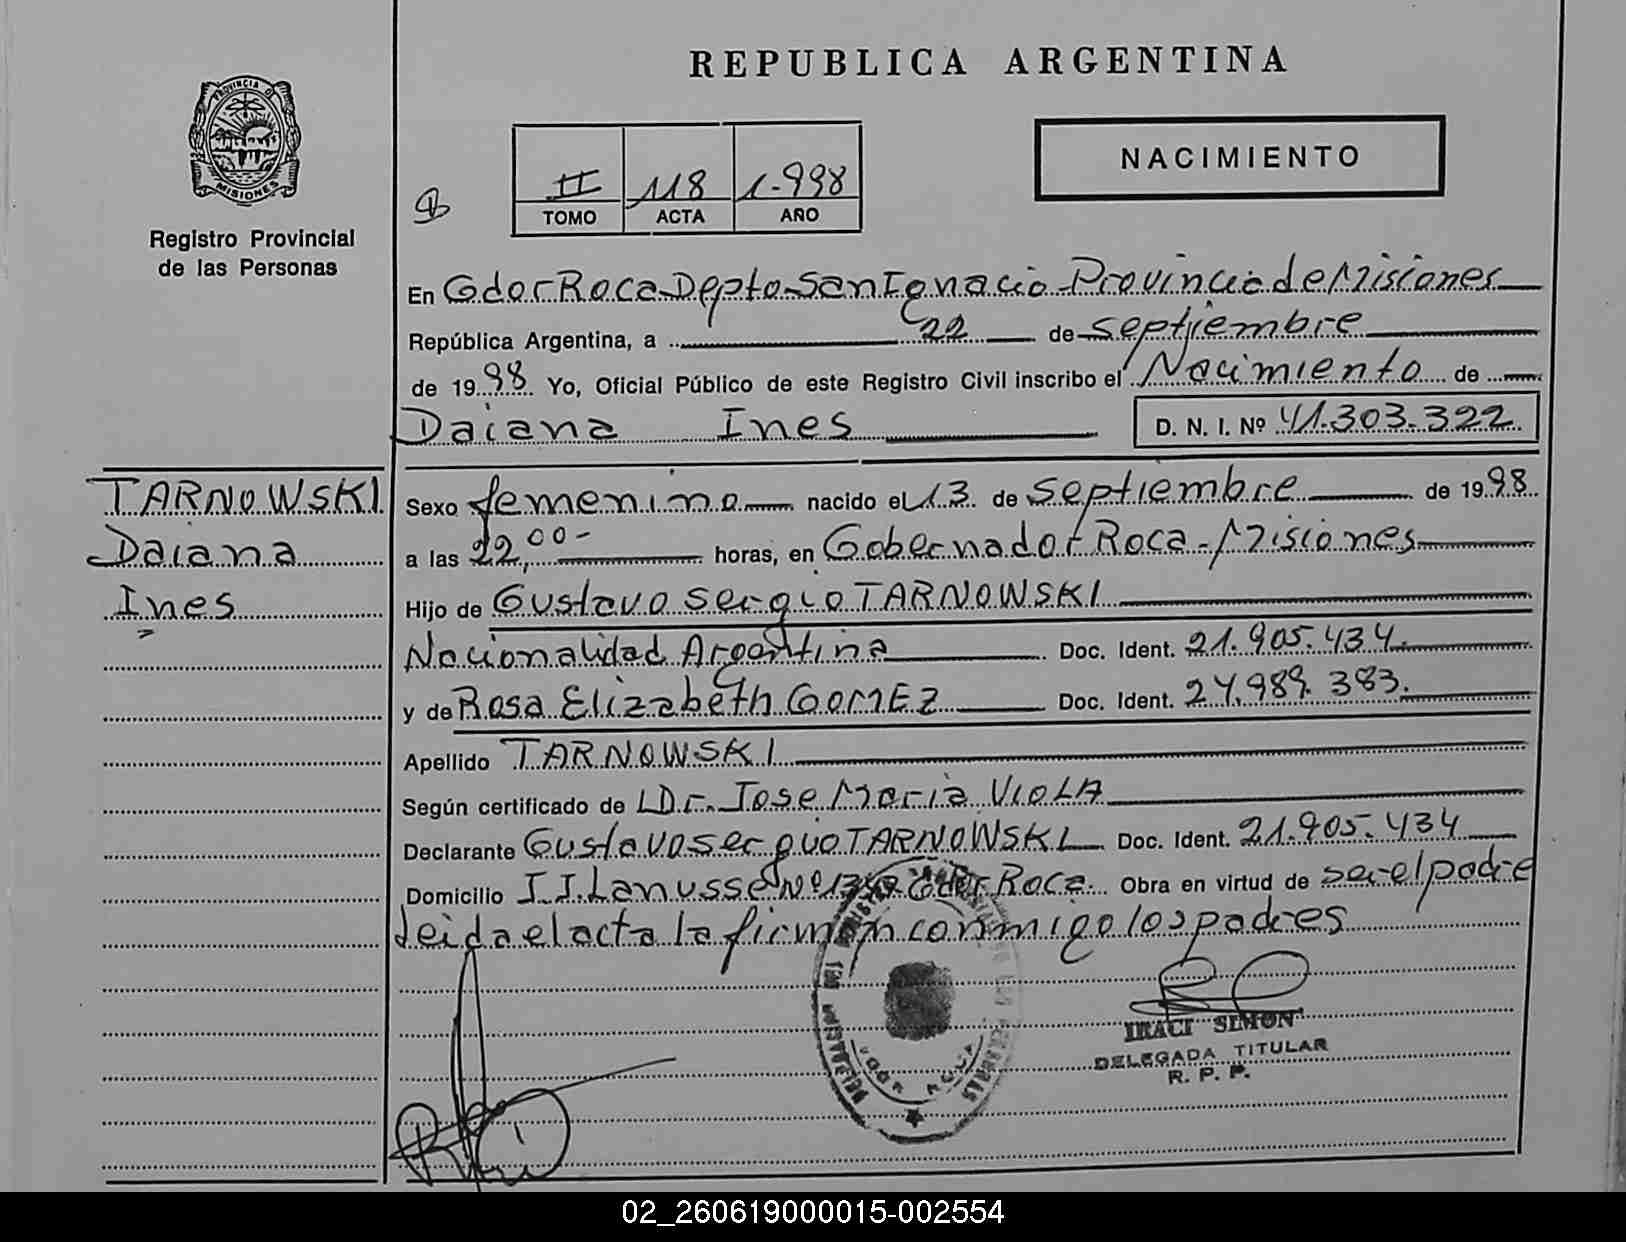 REPUBLICA ARGENTINA
PROVINCIA DE
MISIONES
Registro Provincial
de las Personas
NACIMIENTO
II 118 1.998
TOMO ACTA AÑO
En Gdor Roca Depto San Ignacio - Provincia de Misiones
República Argentina, a 22 de septiembre
de 1998 Yo, Oficial Público de este Registro Civil inscribo el Nacimiento de
Daiana Ines D. N. I. Nº 41.303.322
TARNOWSKI
Daiana
Ines
Sexo femenino nacido el 13 de septiembre de 1998
a las 22,00- horas, en Gobernador Roca - Misiones
Hijo de Gustavo Sergio TARNOWSKI
Nacionalidad Argentina Doc. Ident. 21.905.434.
y de Rosa Elizabeth GOMEZ Doc. Ident. 24.989.383.
Apellido TARNOWSKI
Según certificado de Dr. Jose Maria VIOLA
Declarante Gustavo Sergio TARNOWSKI Doc. Ident. 21.905.434
Domicilio J.J. Lanusse Nº Gdor Roca Obra en virtud de ser el padre
leida el acta la firman conmigo los padres
IRACI SIMON
DELEGADA TITULAR
R. P. P.
02_260619000015-002554